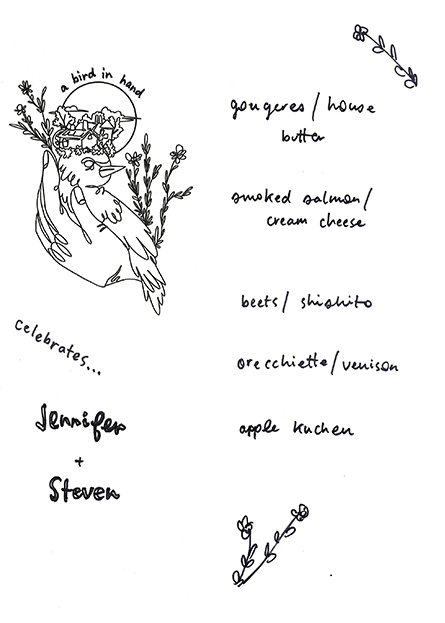 a bird in hand
celebrates...
Jennifer
+
Steven
gougeres / house
butter
smoked salmon /
cream cheese
beets / shishito
orecchiette / venison
apple kuchen